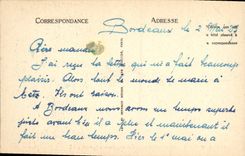 CORRESPONDANCE
ADRESSE
Bordeaux le 2 Mai
Chère maman
J'ai reçu ta lettre qui m'a fait beaucoup
plaisir. Alors tout le monde se marie à
ils ont raison.
A Bordeaux nous avons un temps superbe
avant hier il a plu et maintenant il
fait un beau temps. Hier le 1er mai on a